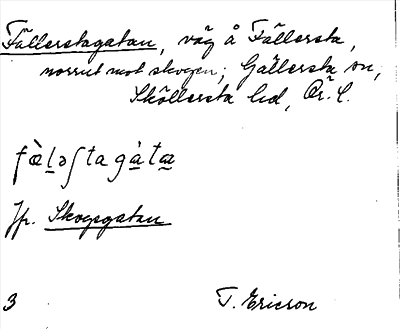 Fällerstagatan, väg å Fällersta,
norrut mot skogen; Gällersta sn,
Sköllersta hd, Ör. l.
fæ̀ḷəʃtagàtæ
Jfr. Skogsgatan
3 T. Ericson